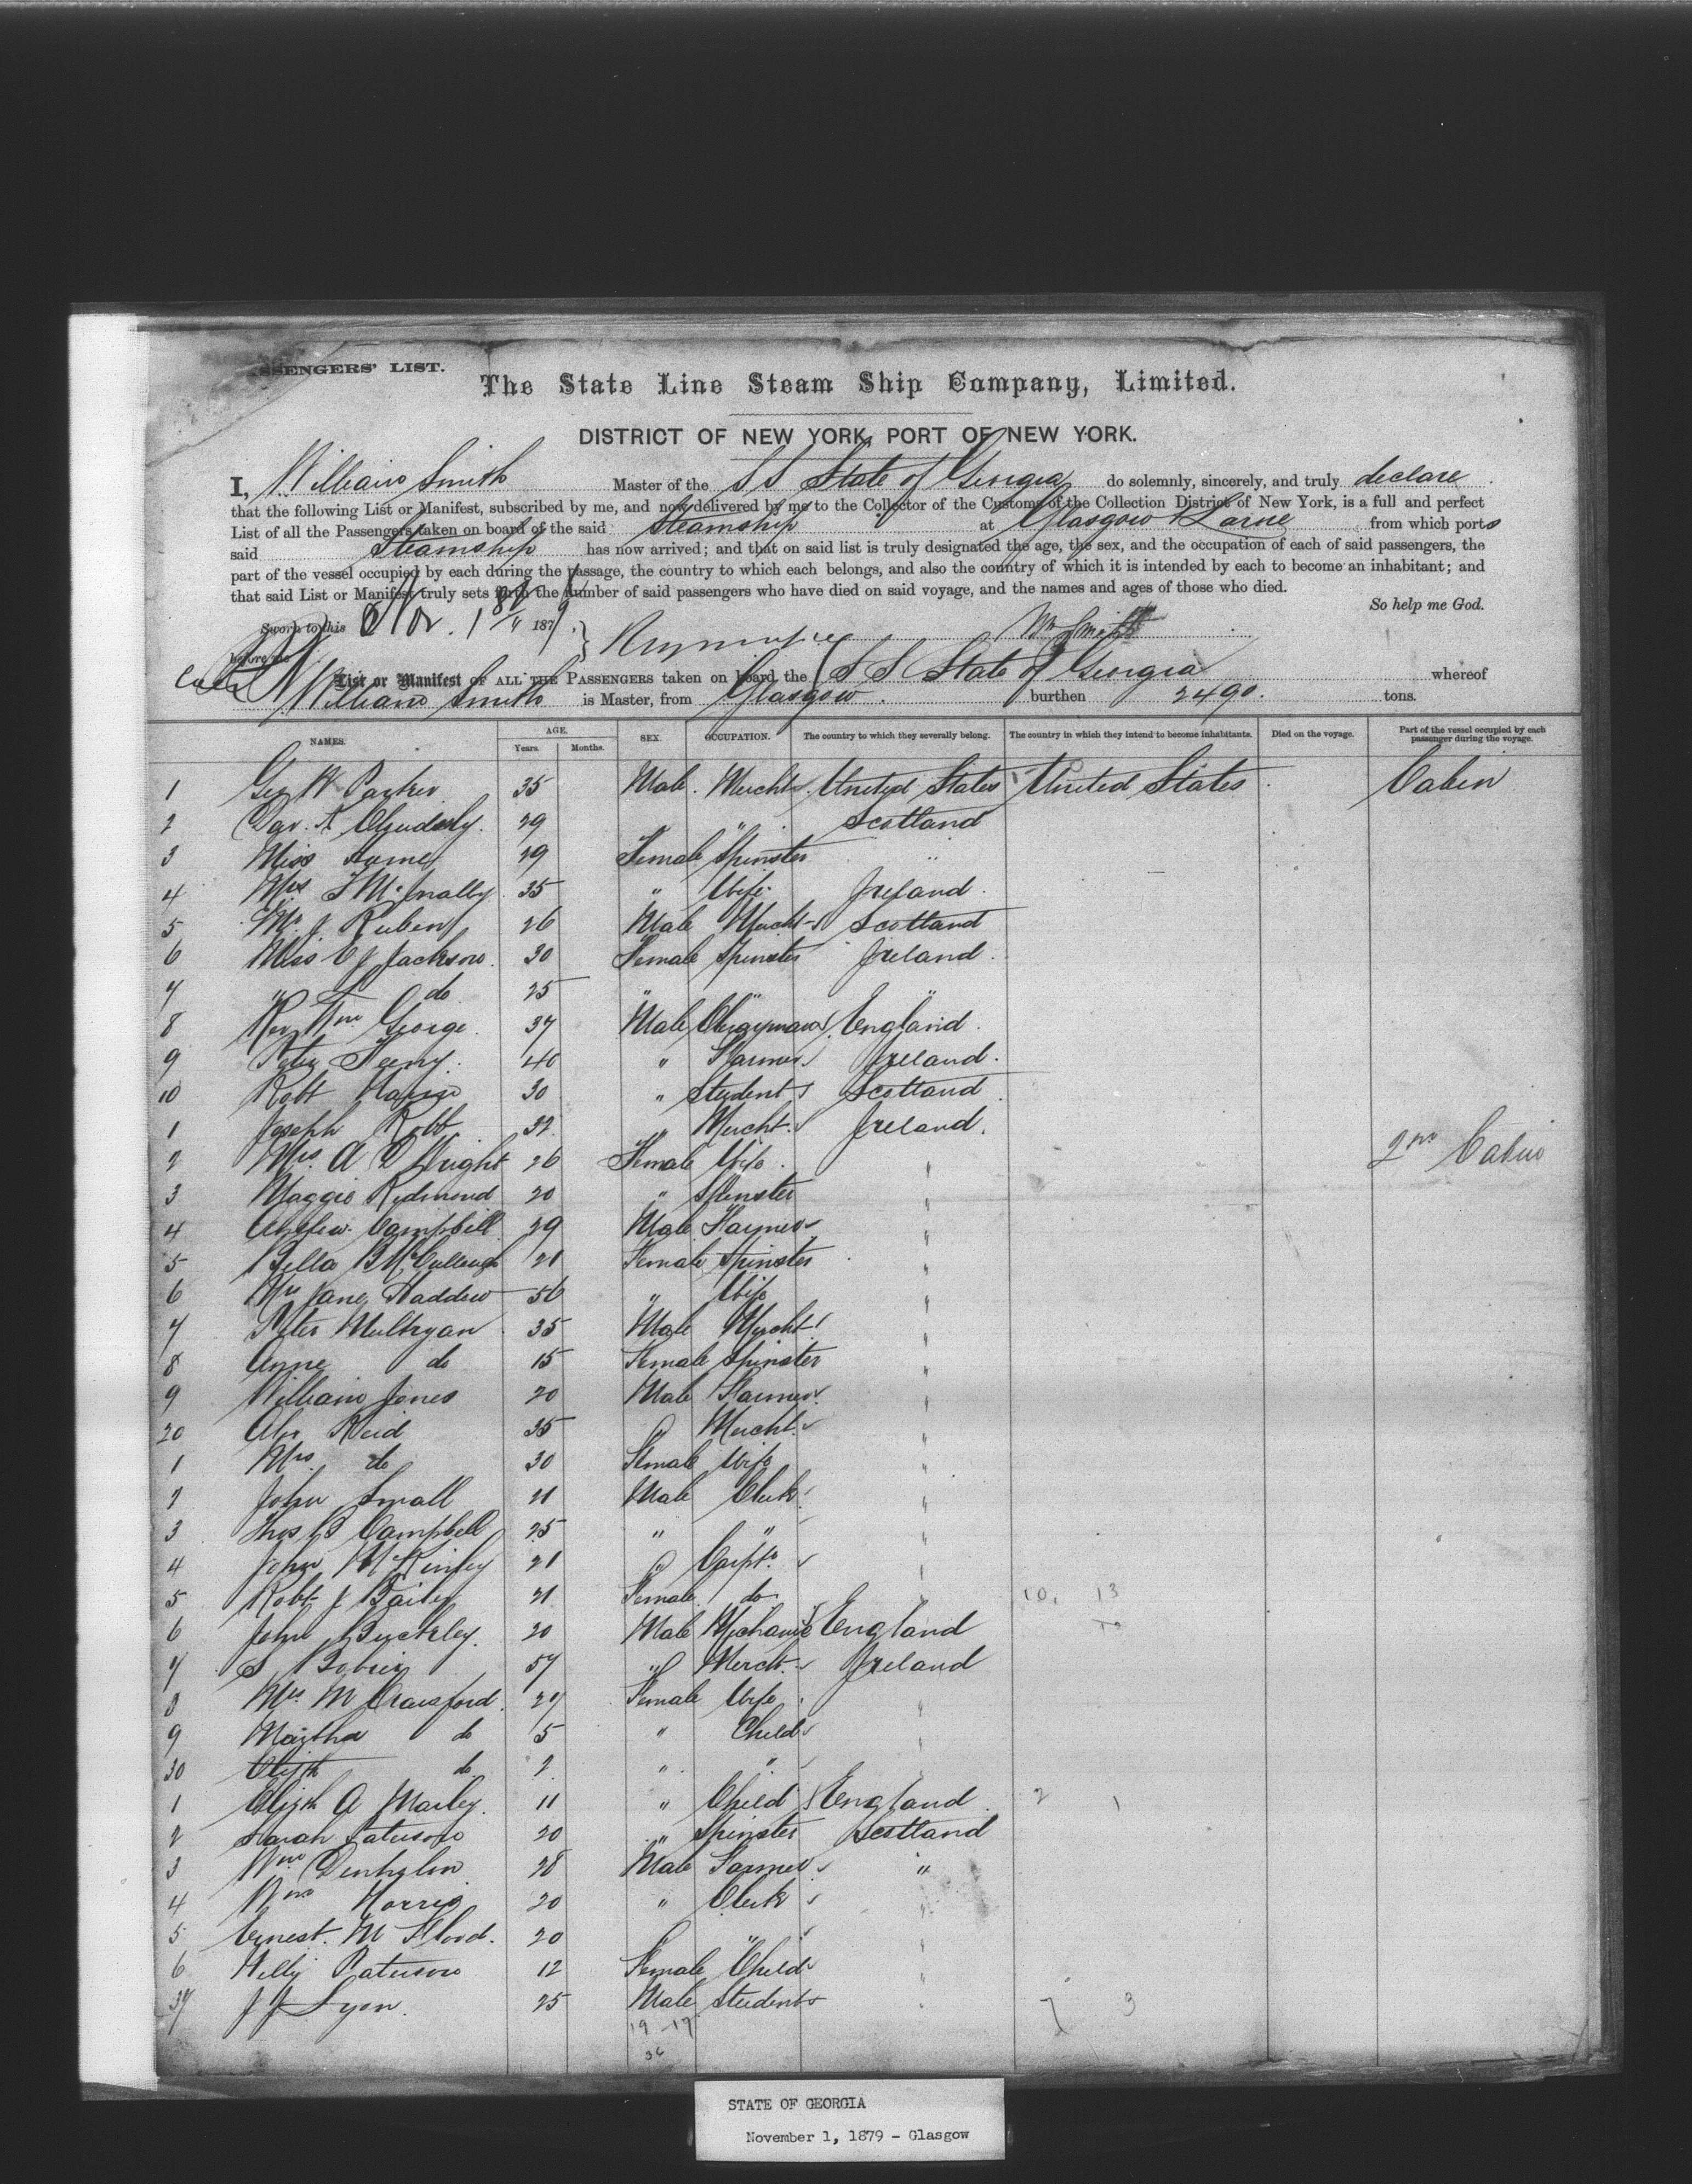 SSENGERS' LIST.
The State Line Steam Ship Company, Limited.
DISTRICT OF NEW YORK, PORT OF NEW YORK.
I, William Smith Master of the S S State of Georgia do solemnly, sincerely, and truly declare
that the following List or Manifest, subscribed by me, and now delivered by me to the Collector of the Customs of the Collection District of New York, is a full and perfect
List of all the Passengers taken on board of the said Steamship at Glasgow & Larne from which ports
said Steamship has now arrived; and that on said list is truly designated the age, the sex, and the occupation of each of said passengers, the
part of the vessel occupied by each during the passage, the country to which each belongs, and also the country of which it is intended by each to become an inhabitant; and
that said List or Manifest truly sets forth the number of said passengers who have died on said voyage, and the names and ages of those who died.
So help me God.
Sworn to this Nov. 1 1879 Wm Smith
before me
List or Manifest OF ALL THE PASSENGERS taken on board the S S State of Georgia whereof
William Smith is Master, from Glasgow. burthen 2490. tons.
NAMES. AGE. Years. Months. SEX. OCCUPATION. The country to which they severally belong. The country in which they intend to become inhabitants. Died on the voyage. Part of the vessel occupied by each passenger during the voyage.
1 Geo W 35 Male Mercht United States United States Cabin
2 29 " Scotland
3 Miss 29 Female Spinster "
4 Mrs McAnally 35 " Wife Ireland
5 Mr J Ruben 26 Male Mercht Scotland
6 Miss C J Jackson 30 Female Spinster Ireland
7 " do 25 " " "
8 Rev Wm George 37 Male Clergyman England
9 Peter Feeny 40 " Farmer Ireland
10 Robt 30 " Student Scotland
1 Joseph Robb 32 " Mercht Ireland
2 Mrs A D Wright 26 Female Wife " 2nd Cabin
3 Maggie Redmond 20 " Spinster "
4 Andrew Campbell 29 Male Farmer "
5 Bella B McCullough 21 Female Spinster "
6 Mrs Jane Hadden 56 " Wife "
7 Peter Mulhryan 35 Male Mercht "
8 Anne do 15 Female Spinster "
9 William Jones 20 Male Farmer "
20 Alex Reid 35 " Mercht "
1 Mrs do 30 Female Wife "
2 John Small 21 Male Clerk "
3 Thos Campbell 25 " " "
4 John McKinley 21 " Carptr "
5 Robt J Bailey 21 Female do " 10. 13
6 John Buckley 20 Male Mechanic England
7 S 57 " Mercht Ireland
8 Mrs M Crawford 27 Female Wife "
9 Martha do 5 " Child "
30 Elizth do 2 " " "
1 Elizth A Marley 11 " Child England 2 1
2 Sarah Paterson 20 " Spinster Scotland
3 Wm 28 Male Farmer "
4 Wm Morris 20 " Clerk "
5 Ernest M Flood 20 " " "
6 Nelly Paterson 12 Female Child "
37 J J Lyon 25 Male Student " 7 3
19 - 17
36
STATE OF GEORGIA
November 1, 1879 - Glasgow